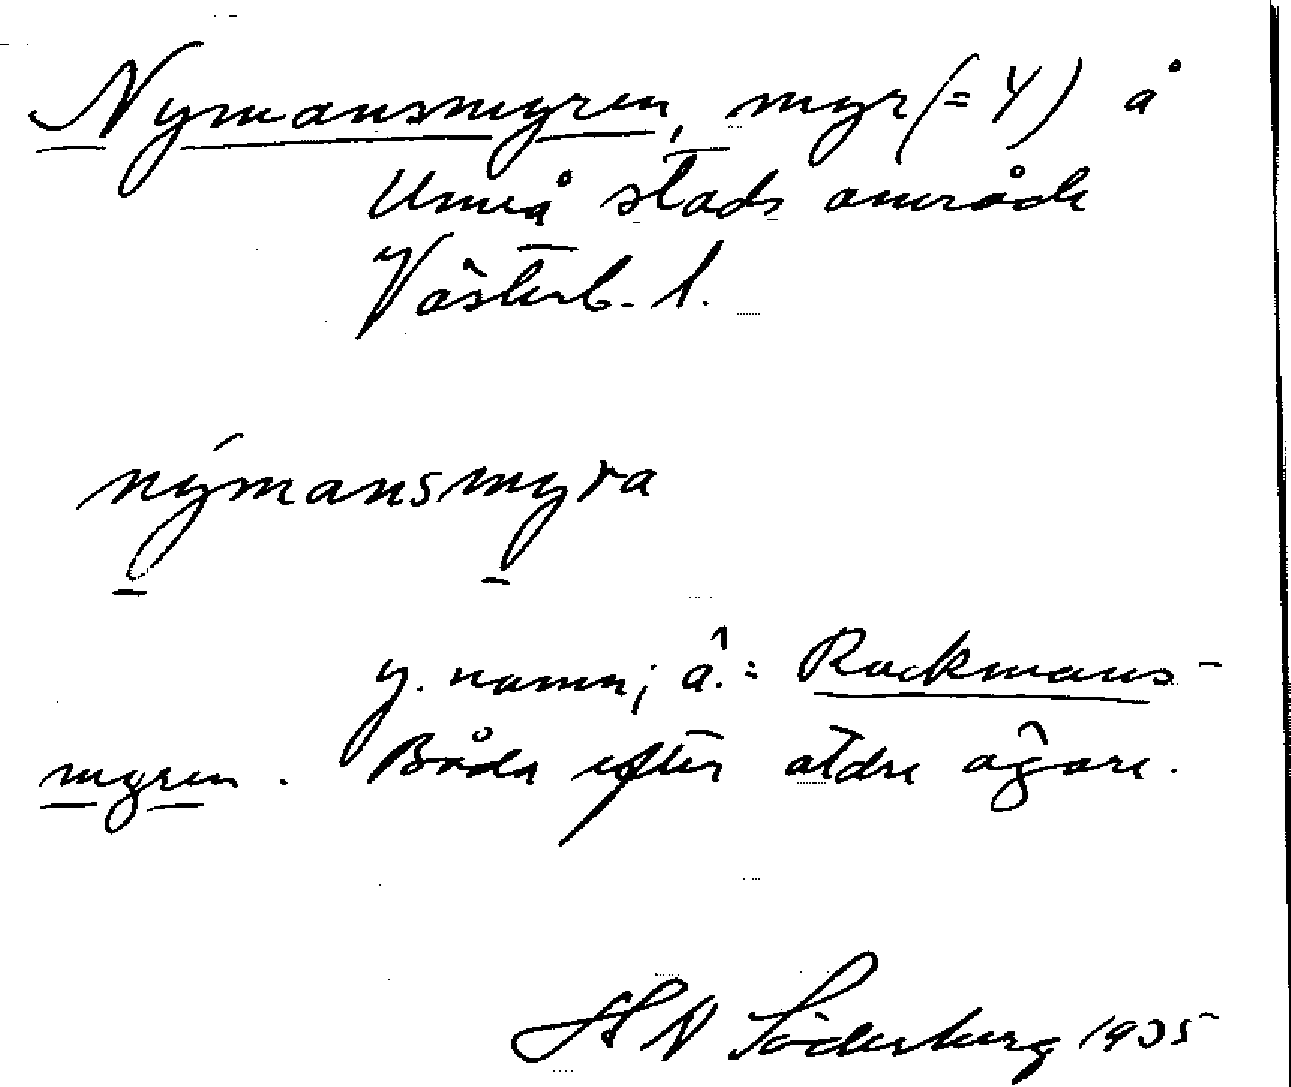 Nymansmyren, myr (= Y) å
Umeå stads område
Västerb. l.
nýmansmyra
y. namn; ä. = Rackmans-
myren. Båda efter äldre ägare.
Söderberg 1935